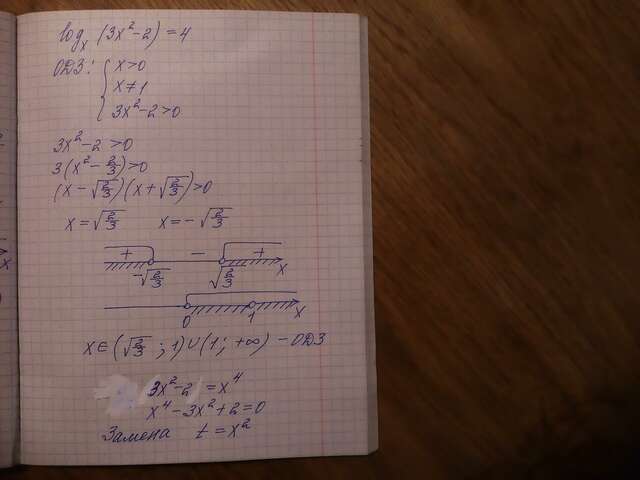 logₓ (3x²-2) = 4
ОДЗ: { x>0
x≠1
3x²-2>0
3x²-2>0
3(x²-2/3)>0
(x-√2/3)(x+√2/3)>0
x=√2/3 x=-√2/3
+ - +
-√2/3 √2/3 x
0 1 x
x∈(√2/3 ; 1)∪(1; +∞) - ОДЗ
3x²-2 = x⁴
x⁴-3x²+2=0
Замена t = x²
x